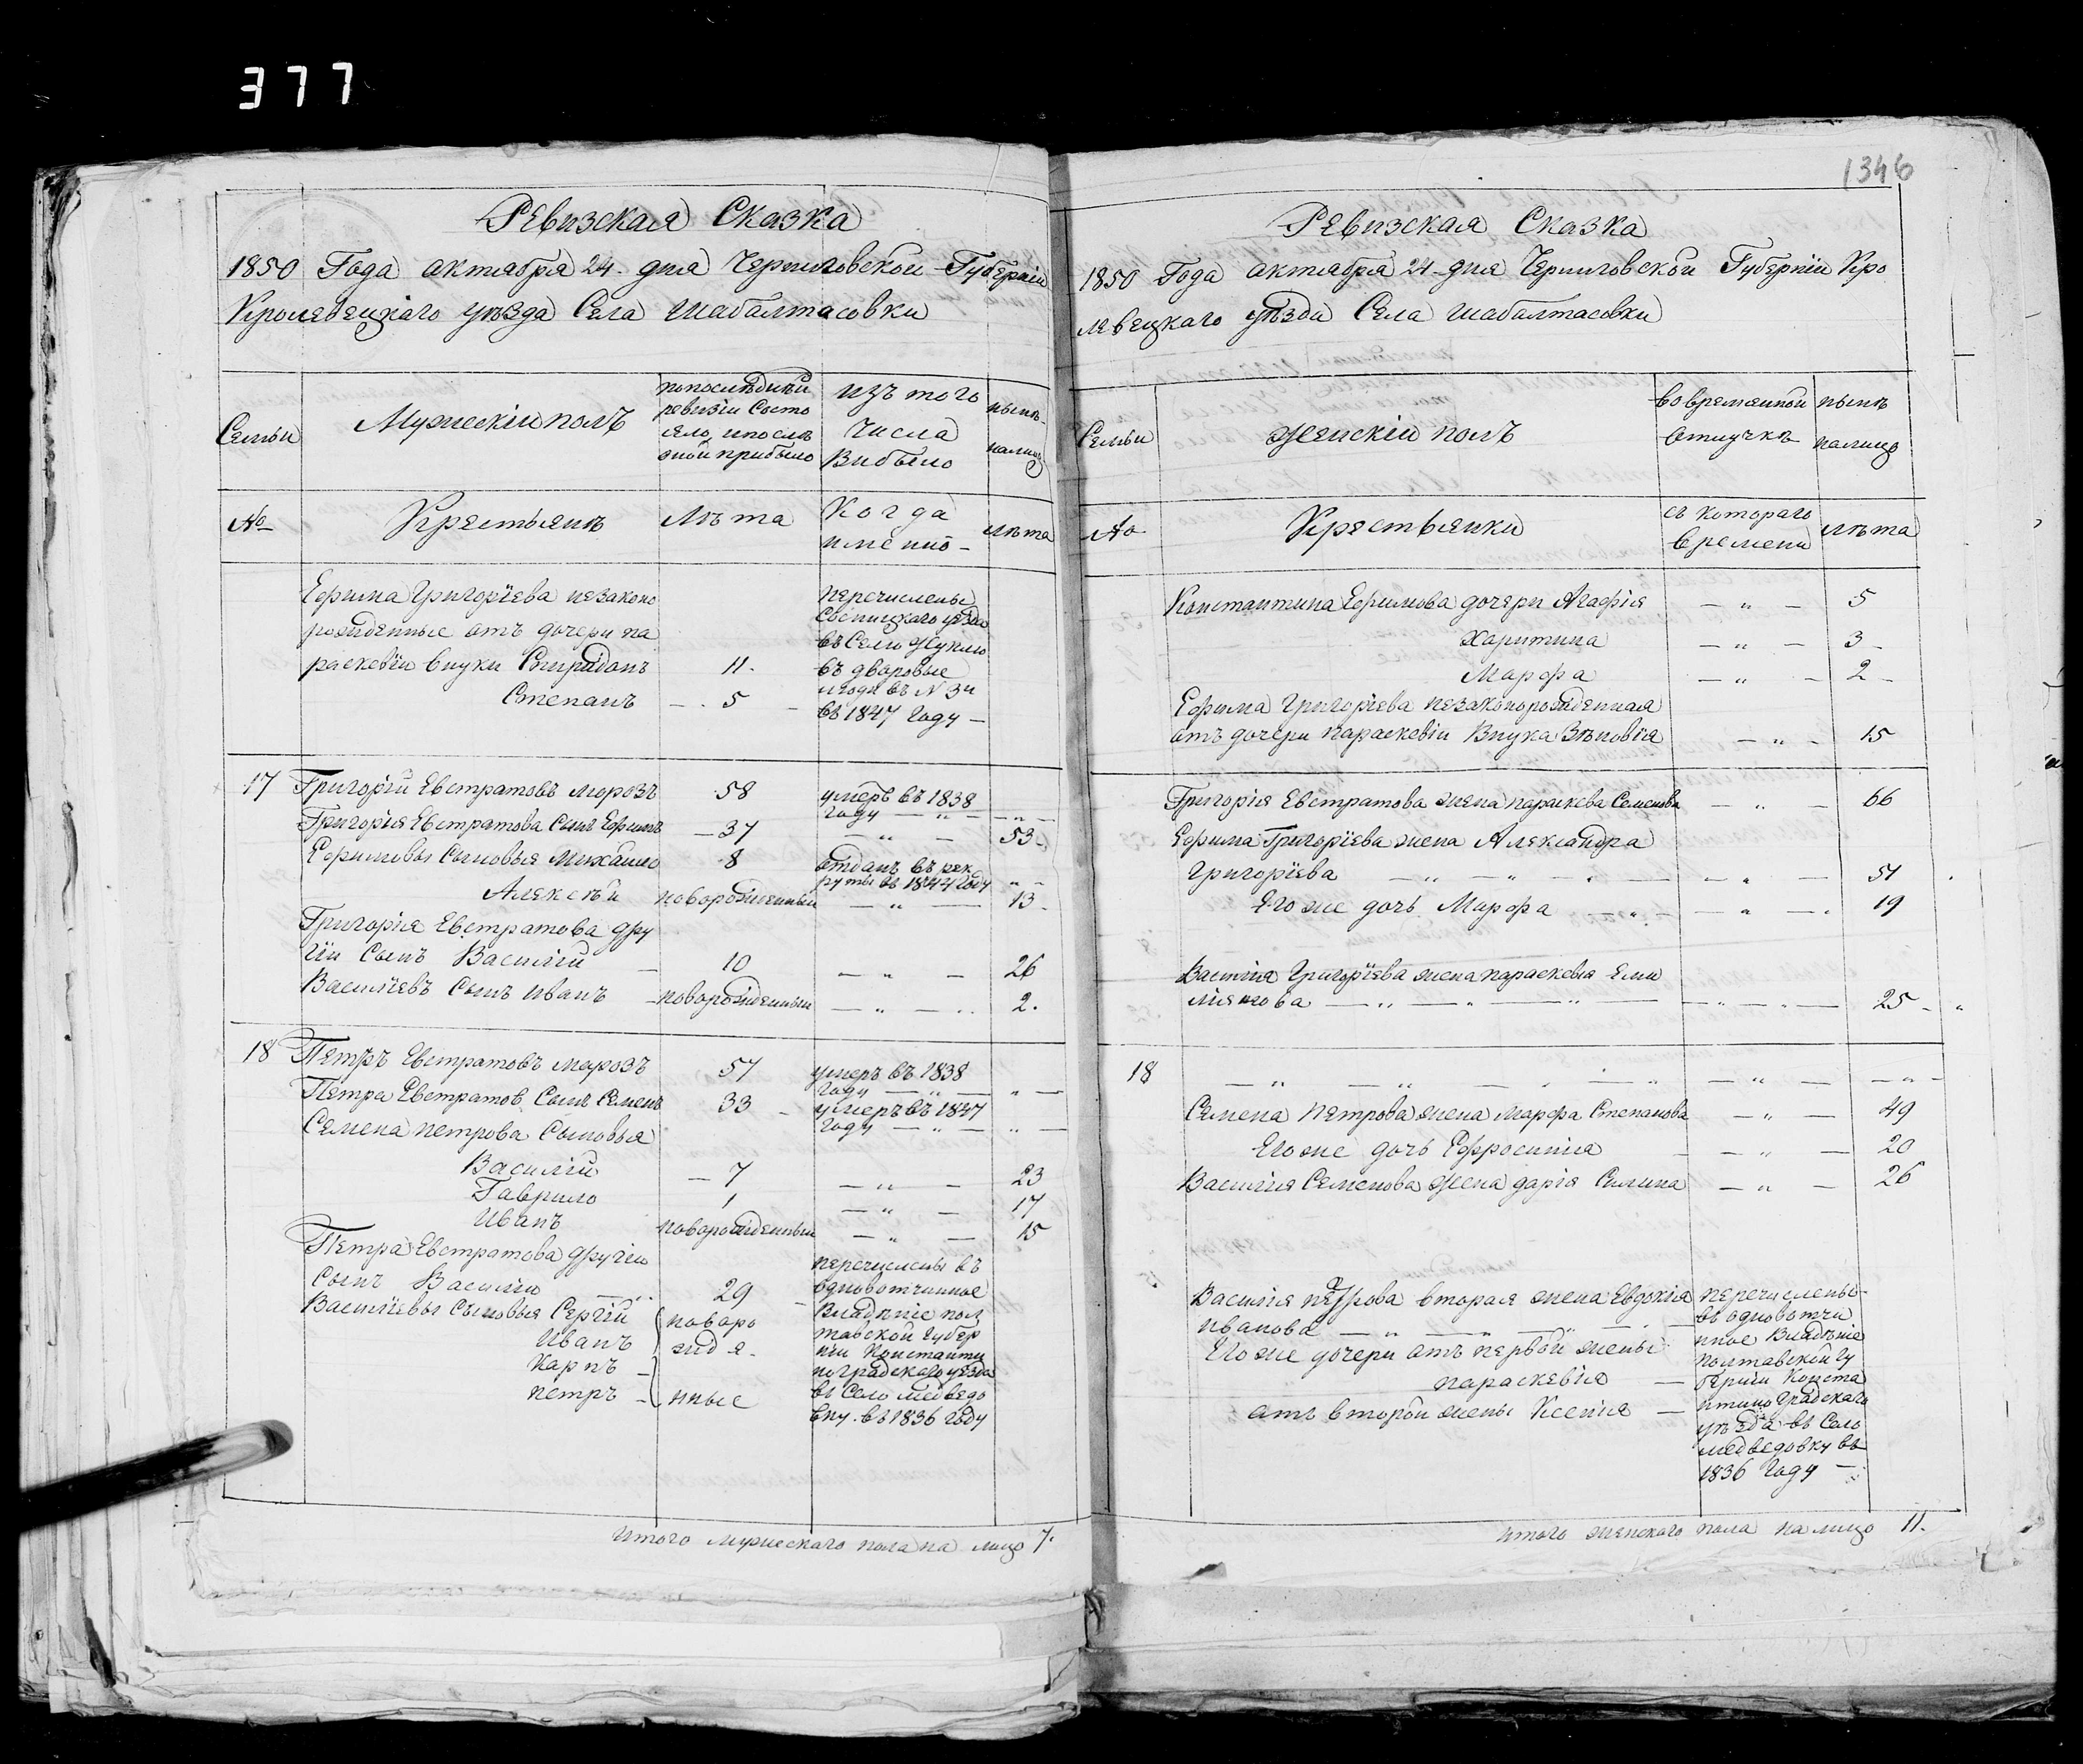 377
1346
Ревизская Сказка
1850 Года октября 24 дня Черниговской Губерніи
Кролевецкаго уѣзда Села Шабалтасовки
Семьи
Мужескій полъ
попослѣдней
ревизіи Состо
яло, ипослѣ
оной прибыло
изъ того
Числа
Выбыло
нынѣ
налицо
№
Крестьянъ
Лѣта
Когда
именно
лѣта
Ефима Григоріева незаконо
рожденные отъ дочери па
раскевіи внуки Спиридонъ 11.
Степанъ 5
перечислены
Сосницкаго уѣзда
въ Село Жуклю
въ дворовые
люди въ № 3й
въ 1847 году
17 Григорій Евстратовъ морозъ 58 умеръ въ 1838
году — „ —
Григорія Евстратова Сынъ Ефимъ 37 — „ — 53
Ефимовы Сыновья Михайло 8 отданъ въ рек
руты въ 1844 году „
Алексѣй новорожденный — „ — 13
Григорія Евстратова дру
гій Сынъ Василій 10 — „ — 26
Василіевъ Сынъ иванъ новорожденный — „ — 2.
18 Петръ Евстратовъ Марозъ 57 умеръ въ 1838
году — „ —
Петра Евстратов. Сынъ Семенъ 33 умеръ въ 1847
году — „ —
Семена петрова Сыновья
Василій 7 — „ — 23
Гаврило 1 — „ — 17
Иванъ новорожденный — „ — 15
Петра Евстратова другій
Сынъ Василій 29
Василіевы Сыновья Сергій
Иванъ
Карпъ
петръ
новоро
жде
нные
перечислены въ
одновотчинное
Владѣніе пол
тавской Губер
ніи Константи
ноградскаго уѣзда
въ Село медведо
вку въ 1836 году
Итого мужескаго пола на лицо 7.
Ревизская Сказка
1850 Года октября 24 дня Черниговской Губерніи Кро
левецкаго уѣзда Села шабалтасовки
Семьи
женскій полъ
вовременной
отлучкѣ
нынѣ
налицо
№
Крестьянки
съ котораго
времени
лѣта
Константина Ефимова дочери Агафія — „ — 5
Харитина — „ — 3
Марфа — „ — 2
Ефима Григоріева незаконорожденная
отъ дочери параскевіи Внука Зѣновія — „ — 15
Григорія Евстратова жена параскева Семенова — „ — 66
Ефима Григоріева жена Александра
Григоріева — „ — 51
Его же дочь Марфа — „ — 19
Василія Григоріева жена параскевья Еми
ліянова — „ — 25
18 — „ —
Семена Петрова жена марфа Степанова — „ — 49
Его же дочь Ефросинія — „ — 20
Василія Семенова жена дарія Силина — „ — 26
Василія петрова вторая жена Евдокія
иванова — „ —
Его же дочери отъ первой жены
параскевія
отъ второй жены Ксенія
перечислены
въ одновотчи
нное Владѣніе
полтавской гу
берніи Конста
нтиноградскаго
уѣзда въ Село
медведовку въ
1836 году
итого женскаго пола на лицо 11.